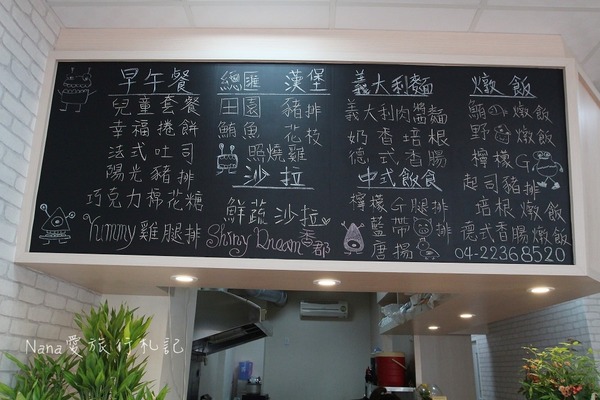 早午餐
兒童套餐
幸福捲餅
法式吐司
陽光豬排
巧克力棉花糖
Yummy雞腿排
總匯 漢堡
田園 豬排
鮪魚 花枝
照燒雞
沙拉
鮮蔬沙拉
Shiny Dream香郡
義大利麵
義大利肉醬麵
奶香培根
德式香腸
中式飯食
檸檬G腿排
藍帶豬排
唐揚
燉飯
鮪の燉飯
野菇燉飯
檸檬G
起司豬排
培根燉飯
德式香腸燉飯
04-22368520
Nana愛旅行札記